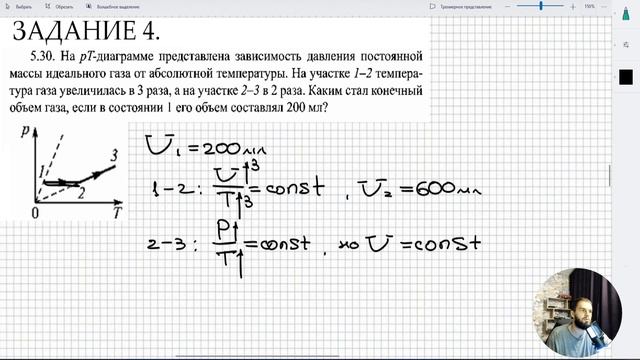 Выбрать Обрезать Волшебное выделение Трехмерное представление 150%
ЗАДАНИЕ 4.
5.30. На pT-диаграмме представлена зависимость давления постоянной
массы идеального газа от абсолютной температуры. На участке 1–2 темпера-
тура газа увеличилась в 3 раза, а на участке 2–3 в 2 раза. Каким стал конечный
объем газа, если в состоянии 1 его объем составлял 200 мл?
p
1
2
3
0
T
V₁=200мл
1-2: V↑3/T↑3=const, V₂=600мл
2-3: P↑/T↑=const, но V=const